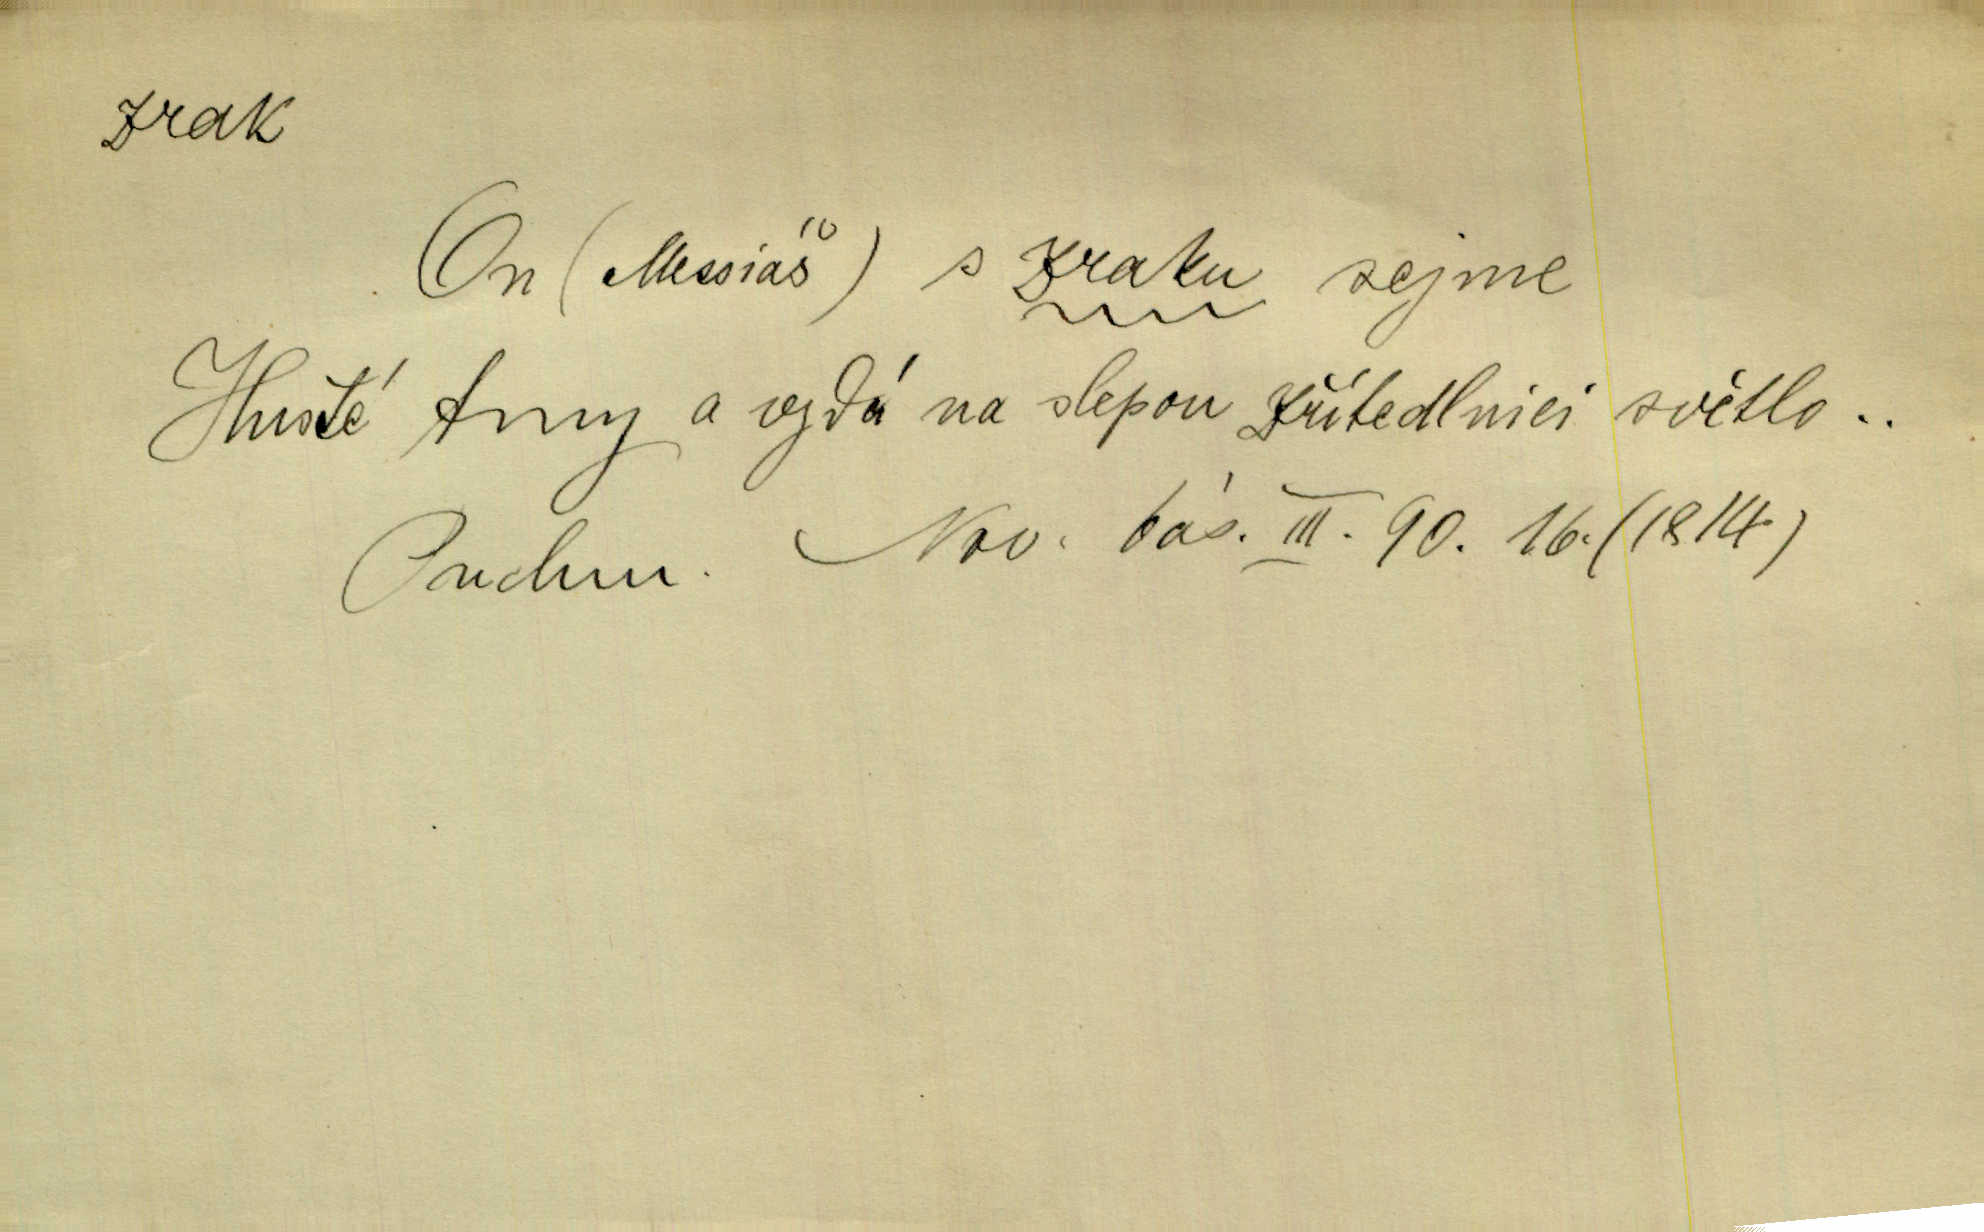 zrak
On (Messiáš) s zraku sejme
Husté tmy a vydá na slepou zřítedlnici světlo ..
Puchm. Nov. bás. III. 90. 16. (1814)